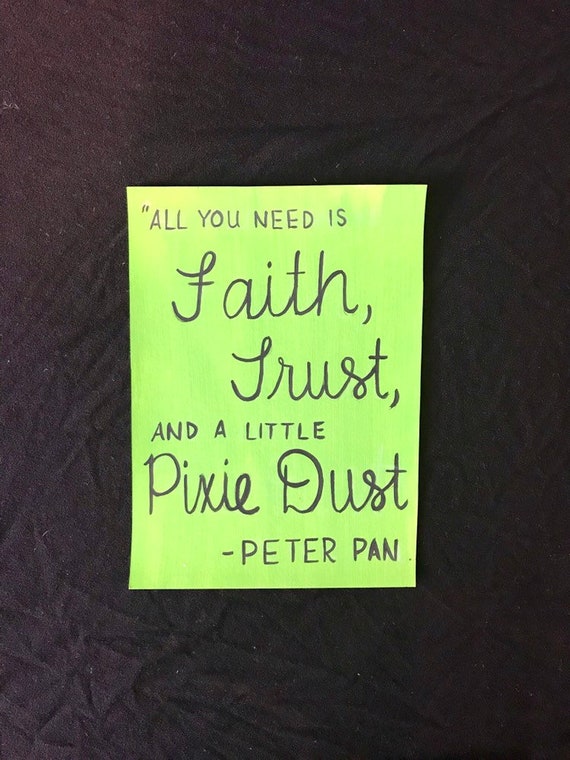 "ALL YOU NEED IS
Faith,
Trust,
AND A LITTLE
Pixie Dust
-PETER PAN.